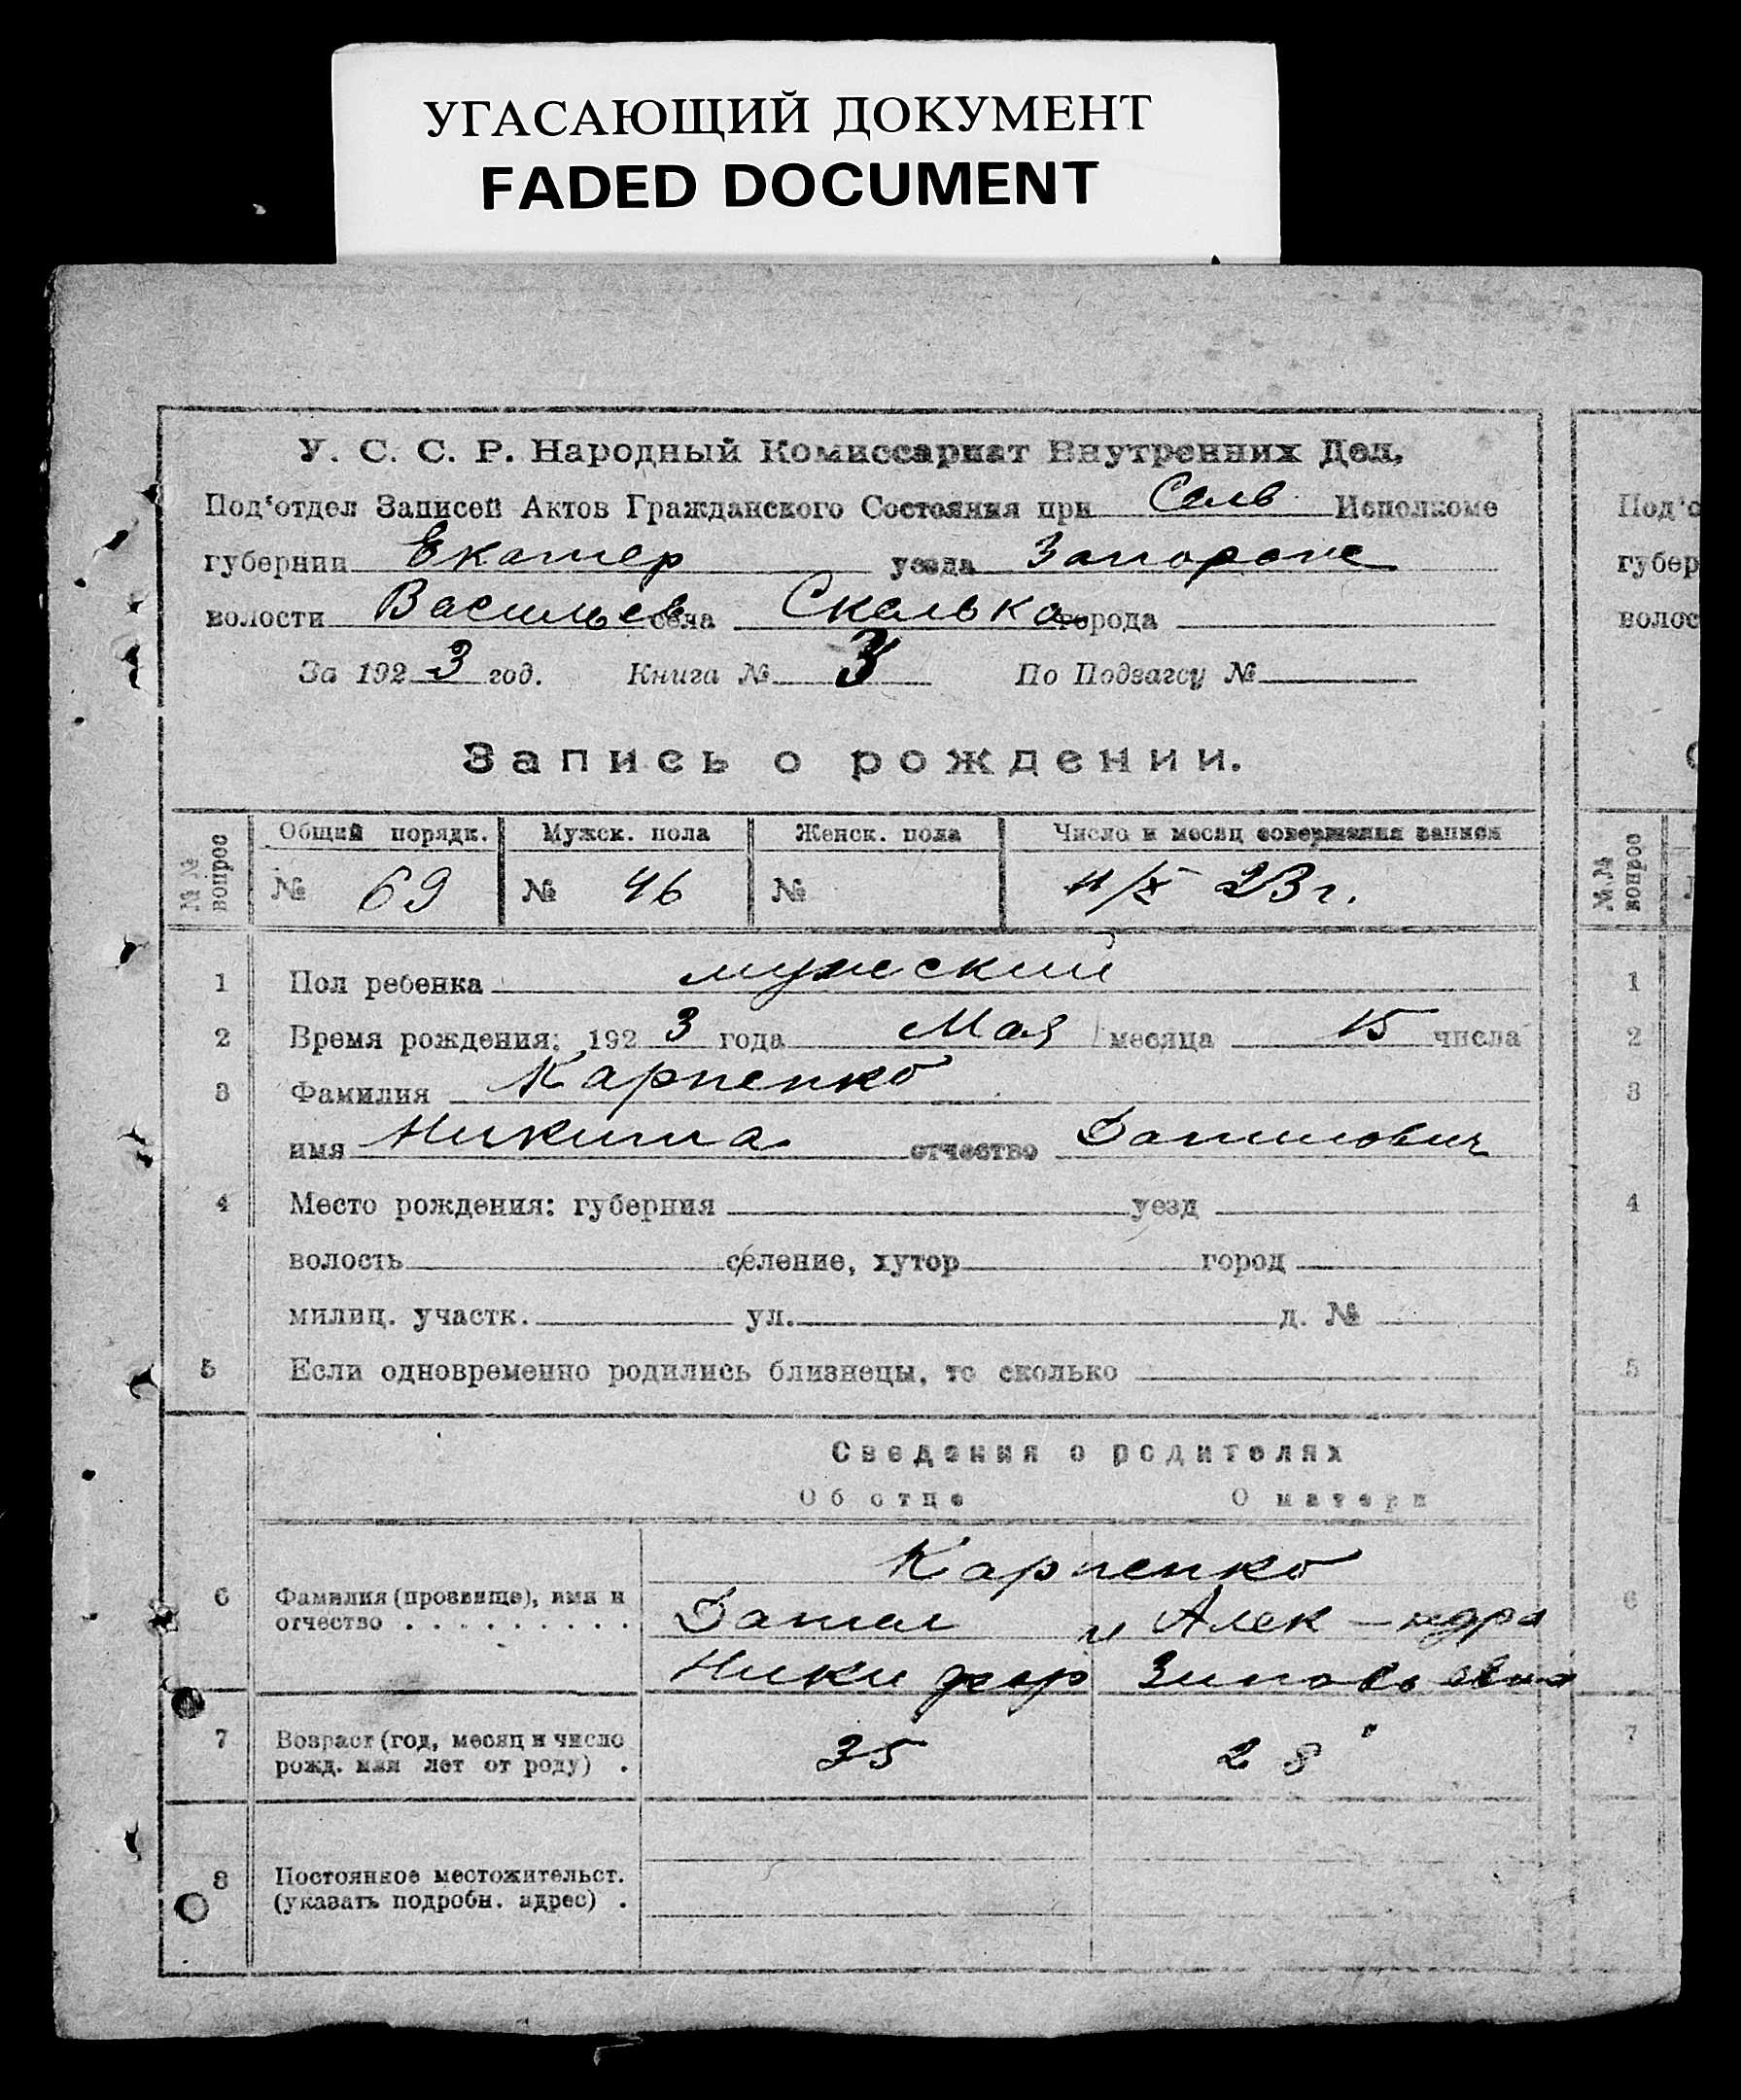 УГАСАЮЩИЙ ДОКУМЕНТ
FADED DOCUMENT
У. С. С. Р. Народный Комиссариат Внутренних Дел,
Под‘отдел Записей Актов Гражданского Состояния при Сельв Исполкоме
губернии Екатер уезда Запорож
волости Васильев села Скелька города
За 1923 год. Книга № 3 По Подзагсу №
Запись о рождении.
№№ вопрос Общий порядк. Мужск. пола Женск. пола Число и месяц совершения записи
№ 69 № 46 № 11/X 23 г.
1 Пол ребенка мужский
2 Время рождения: 1923 года Мая месяца 15 числа
3 Фамилия Карпенко
имя Никита отчество Данилович
4 Место рождения: губерния уезд
волость селение, хутор город
милиц. участк. ул. д. №
5 Если одновременно родились близнецы, то сколько
Сведения о родителях
Об отце О матери
Карпенко
6 Фамилия (прозвище), имя и отчество . . . . . . . . . Данил и Алек-ндра
Никифор Зиновьевна
7 Возраст (год, месяц и число рожд. или лет от роду) . 35 28
8 Постоянное местожительст. (указать подробн. адрес) .
Под‘о
губер
волос
№№ вопрос
1
2
3
4
5
6
7